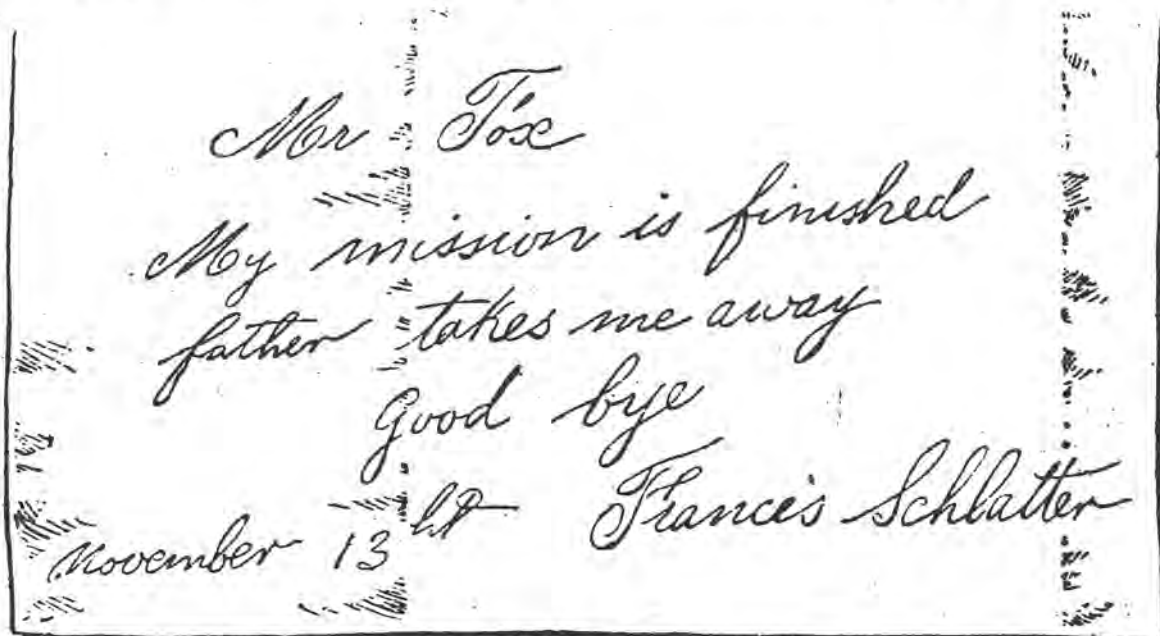 Mr Fox
My mission is finished
father takes me away
Good bye
Francis Schlatter
November 13